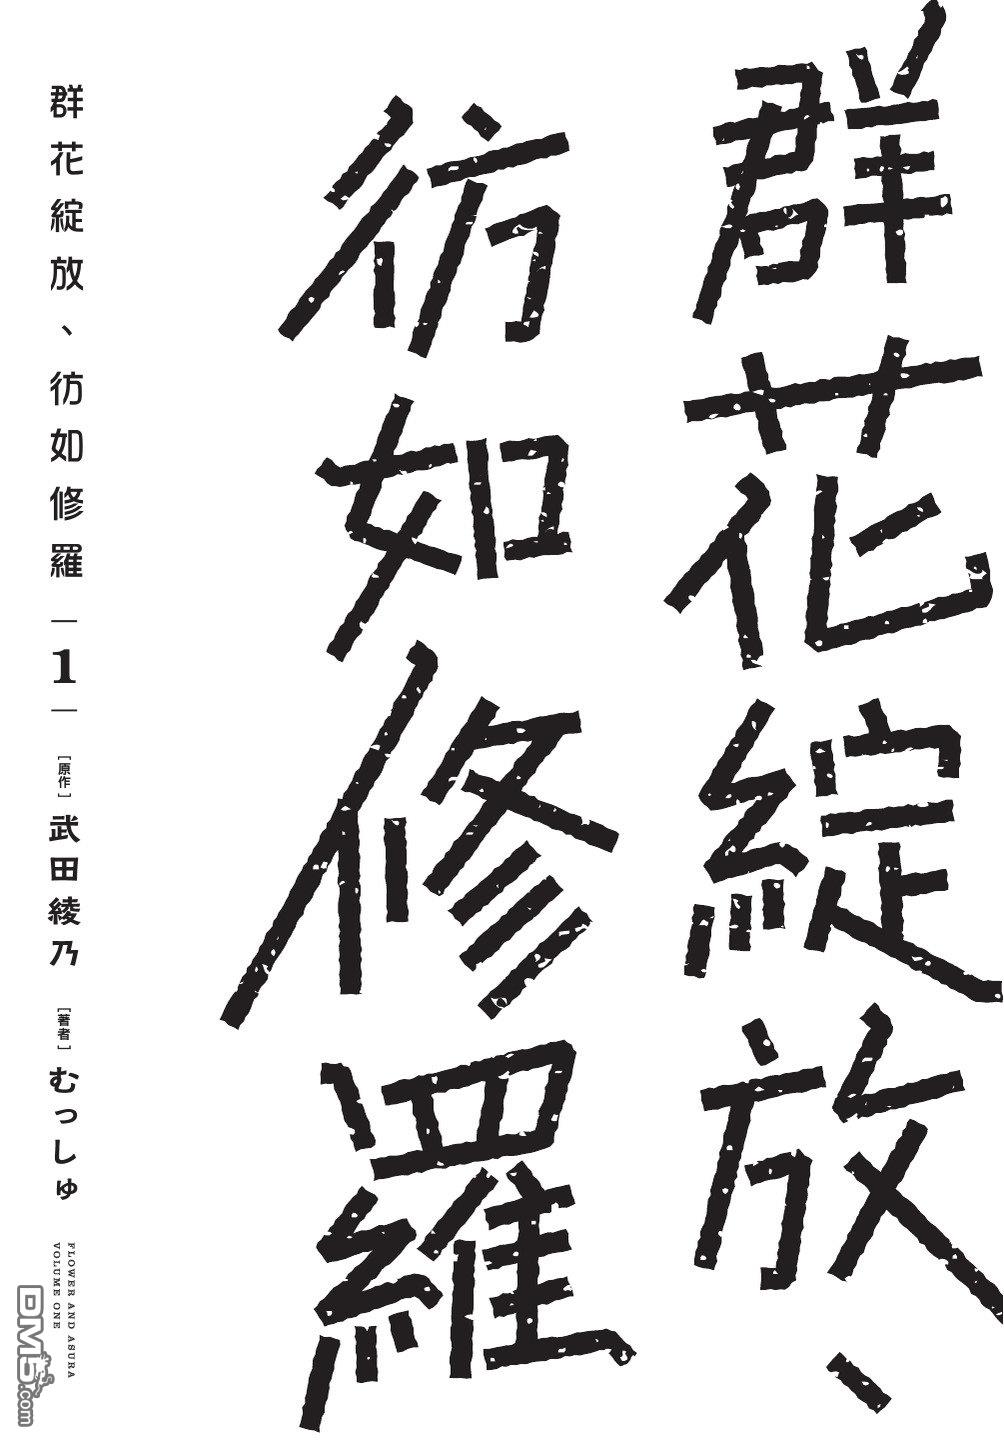 群花綻放、
彷如修羅
群花綻放、彷如修羅
1
[原作]武田綾乃
[著者]むっしゅ
FLOWER AND ASURA
VOLUME ONE
DM5.com